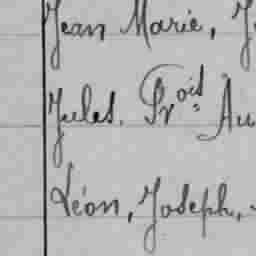 Jean Marie, J
Jules. Frois Au
Léon, Joseph,